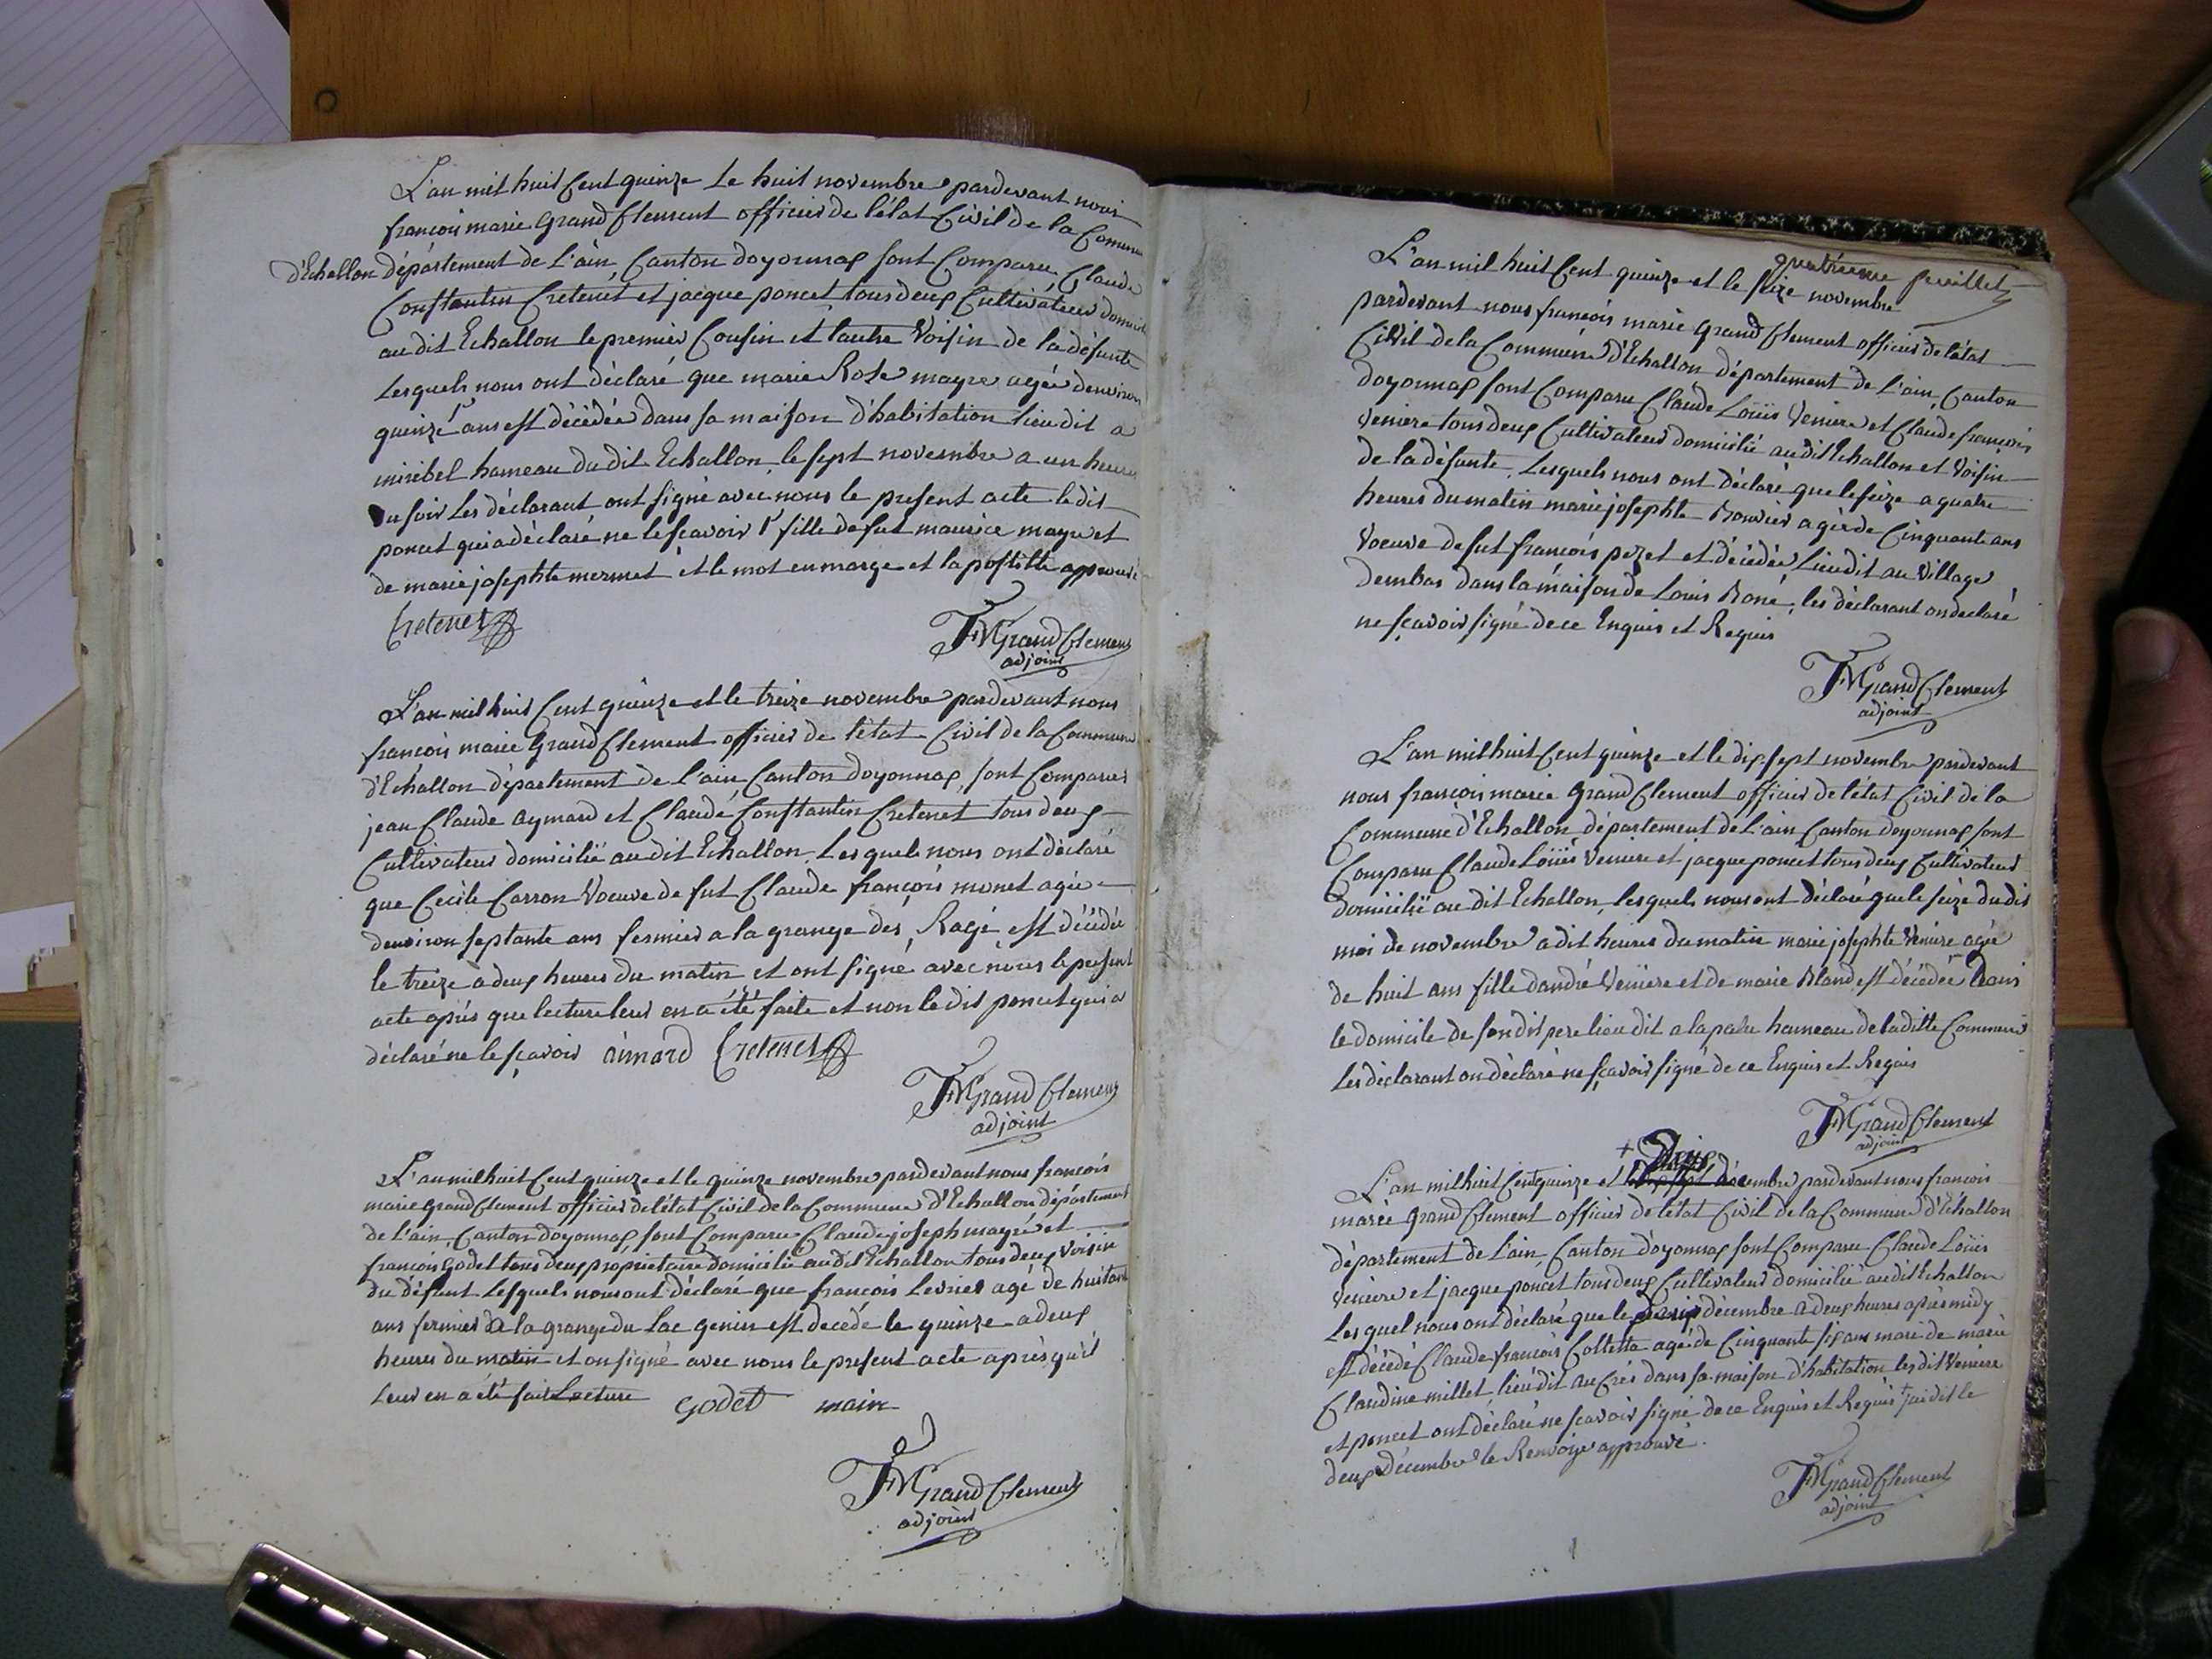 L'an mil huit Cent quinze Le huit novembre pardevant nous
françois marie Grand Clement officier de l'état Civil de la Comune
d'Echallon département de L'ain, Canton doyonnax sont Comparu, Claude
Constantin Cretenet et jacque poncet tous deux Cultivateur domicil
au dit Echallon le premier Cousin et l'autre Voisin de la défunte
Lesquels nous ont déclaré que marie Rose mayre agée denviron
quinze ans est décédée dans sa maison d'habitation lieu dit a
mirebel hameau du dit Echallon, le sept novembre a un heure
du soir Les déclarant ont signé avec nous le present acte ledit
poncet qui a déclaré ne le sçavoir fille de fut maurice mayre et
de marie josephte mermet et le mot en marge et la postille approuvé
Cretenet
FM Grand Clement
adjoint
L'an mil huit Cent quinze et le treize novembre pardevant nous
françois marie Grand Clement officier de l'état Civil de la Commune
d'Echallon département de L'ain Canton doyonnax, sont Comparus
jean Claude aymard et Claude Constantin Cretenet tous deux
Cultivateur domicilié au dit Echallon, Lesquels nous ont déclaré
que Cecile Carron Voeuve de fut Claude françois monet agée
denviron septante ans fermier a la grange des Ragé est décédée
le treize a deux heures du matin et ont signé avec nous le present
acte après que lecture leur en a été faite et non le dit poncet qui a
déclaré ne le sçavoir aimard Cretenet
FM Grand Clement
adjoint
L'an mil huit Cent quinze et le quinze novembre pardevant nous françois
marie Grand Clement officier de l'état Civil de la Commune d'Echallon département
de L'ain, Canton doyonnax, sont Comparu Claude joseph mayre et
françois godet tous deux propriétaire domicilié au dit Echallon tous deux Voisin
du défunt Lesquels nous ont déclaré que françois Levrier agé de huitan
ans fermier a la grange du Lac genin est decédé le quinze a deux
heures du matin et on signé avec nous le present acte après qu'il
Leur en a été fait Lecture godet maire
FM Grand Clement
adjoint
quatrieme feuillet
L'an mil huit Cent quinze et le seize novembre
pardevant nous françois marie Grand Clement officier de l'état
Civil de la Commune d'Echallon département de L'ain, Canton
doyonnax sont Comparu Claude Louis Veniere et Claude françois
Veniere tous deux Cultivateur domicilié au dit Echallon et Voisin
de la défunte, Lesquels nous ont déclaré que le seize a quatre
heures du matin marie josephte agée de Cinquante ans
Voeuve de fut françois pezet et décédée Lieu dit au Village
dembas dans la maison de Louis Boné, les déclarant on déclaré
ne sçavoir signé de ce Enquis et Requis
FM Grand Clement
adjoint
L'an mil huit Cent quinze et le dix sept novembre pardevant
nous françois marie Grand Clement officier de l'état Civil de la
Commune d'Echallon département de L'ain Canton doyonnax sont
Comparu Claude Louis Veniere et jacque poncet tous deux Cultivateur
domicilié au dit Echallon, lesquels nous ont déclaré que le seize du dit
moi de novembre a dit heures du matin marie josephte Veniere agée
de huit ans fille dandré Veniere et de marie Bland est décédée dans
le domicile de son dit pere lieu dit a la palu hameau de la ditte Commune
Les déclarant on déclaré ne sçavoir signé de ce Enquis et Requis
FM Grand Clement
adjoint
+ Deux
L'an mil huit Cent quinze et décembre pardevant nous françois
marie Grand Clement officier de l'état Civil de la Commune d'Echallon
département de L'ain, Canton d'oyonnax sont Comparu Claude Louis
Veniere et jacque poncet tous deux Cultivateur domicilié au dit Echallon
Lesquel nous ont déclaré que le décembre a deux heures après midy
est décédé Claude françois Colletta agé de Cinquante six ans mari de marie
Claudine millet, lieu dit au Cret dans sa maison d'habitation les dit Veniere
et poncet ont déclaré ne sçavoir signé de ce Enquis et Requis + jai dit le
deux décembre le Renvoye approuvé.
FM Grand Clement
adjoint